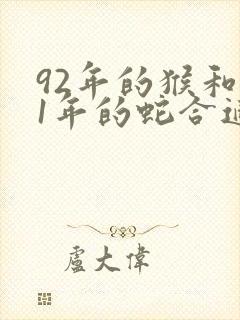 92年的猴和
1年的蛇合适
盧大偉